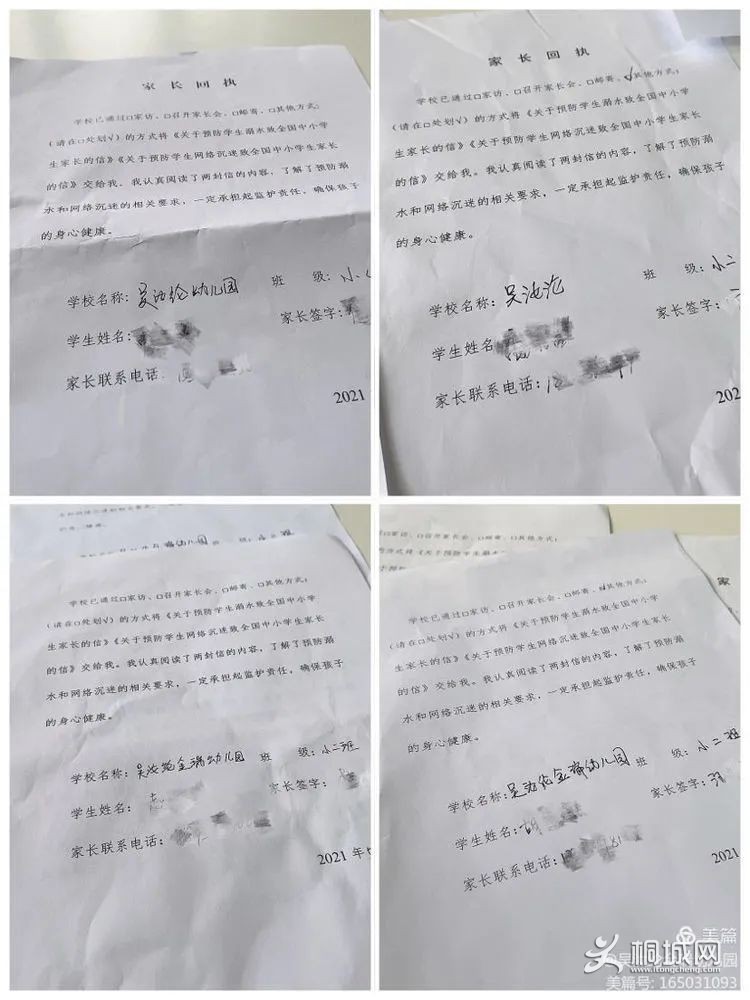 家长回执
学校已通过□家访、□召开家长会、□邮寄、□其他方式;
(请在□处划√)的方式将《关于预防学生溺水致全国中小学
生家长的信》《关于预防学生网络沉迷致全国中小学生家长
的信》交给我。我认真阅读了两封信的内容,了解了预防溺
水和网络沉迷的相关要求,一定承担起监护责任,确保孩子
的身心健康。
学校名称:吴汝纶幼儿园 班 级:小
学生姓名: 家长签字:
家长联系电话:
2021
家长回执
学校已通过□家访、□召开家长会、□邮寄、☑其他方式;
(请在□处划√)的方式将《关于预防学生溺水致全国中小学
生家长的信》《关于预防学生网络沉迷致全国中小学生家长
的信》交给我。我认真阅读了两封信的内容,了解了预防溺
水和网络沉迷的相关要求,一定承担起监护责任,确保孩子
的身心健康。
学校名称:吴汝沦 班 级:小二
学生姓名 家长签字:
家长联系电话:
202
幼儿园 级:小二班
学校已通过□家访、□召开家长会、□邮寄、□其他方式;
(请在□处划√)的方式将《关于预防学生溺水致全国中小学
生家长的信》《关于预防学生网络沉迷致全国中小学生家长
的信》交给我。我认真阅读了两封信的内容,了解了预防溺
水和网络沉迷的相关要求,一定承担起监护责任,确保孩子
的身心健康。
学校名称:吴汝纶金瑞幼儿园 班 级:小二班
学生姓名: 家长签字:
家长联系电话:
2021 年
家访、□召开家长会、□邮寄、□其他方式;
的方式将《关于预防学生溺水
学校已通过□家访、□召开家长会、□邮寄、☑其他方式;
(请在□处划√)的方式将《关于预防学生溺水致全国中小学
生家长的信》《关于预防学生网络沉迷致全国中小学生家长
的信》交给我。我认真阅读了两封信的内容,了解了预防溺
水和网络沉迷的相关要求,一定承担起监护责任,确保孩子
的身心健康。
学校名称:吴汝纶金瑞幼儿园 班 级:小二班
学生姓名:胡 家长签字:
家长联系电话:
2021
美篇
桐城网
itongcheng.com
美篇号: 165031093